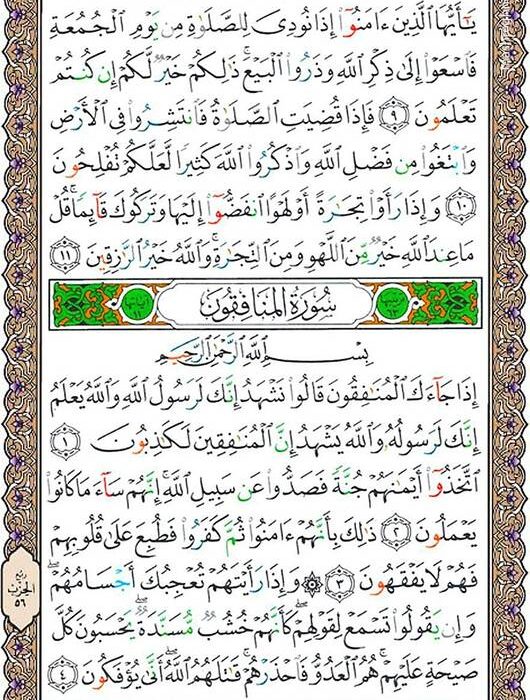 يَـٰٓأَيُّهَا ٱلَّذِينَ ءَامَنُوٓا۟ إِذَا نُودِىَ لِلصَّلَوٰةِ مِن يَوْمِ ٱلْجُمُعَةِ
فَٱسْعَوْا۟ إِلَىٰ ذِكْرِ ٱللَّهِ وَذَرُوا۟ ٱلْبَيْعَ ۚ ذَٰلِكُمْ خَيْرٌ لَّكُمْ إِن كُنتُمْ
تَعْلَمُونَ ٩ فَإِذَا قُضِيَتِ ٱلصَّلَوٰةُ فَٱنتَشِرُوا۟ فِى ٱلْأَرْضِ
وَٱبْتَغُوا۟ مِن فَضْلِ ٱللَّهِ وَٱذْكُرُوا۟ ٱللَّهَ كَثِيرًا لَّعَلَّكُمْ تُفْلِحُونَ
١٠ وَإِذَا رَأَوْا۟ تِجَـٰرَةً أَوْ لَهْوًا ٱنفَضُّوٓا۟ إِلَيْهَا وَتَرَكُوكَ قَآئِمًا ۚ قُلْ
مَا عِندَ ٱللَّهِ خَيْرٌ مِّنَ ٱللَّهْوِ وَمِنَ ٱلتِّجَـٰرَةِ ۚ وَٱللَّهُ خَيْرُ ٱلرَّٰزِقِينَ ١١
سُورَةُ الْمُنَافِقُونَ
بِسْمِ ٱللَّهِ ٱلرَّحْمَـٰنِ ٱلرَّحِيمِ
إِذَا جَآءَكَ ٱلْمُنَـٰفِقُونَ قَالُوا۟ نَشْهَدُ إِنَّكَ لَرَسُولُ ٱللَّهِ ۗ وَٱللَّهُ يَعْلَمُ
إِنَّكَ لَرَسُولُهُۥ وَٱللَّهُ يَشْهَدُ إِنَّ ٱلْمُنَـٰفِقِينَ لَكَـٰذِبُونَ ١
ٱتَّخَذُوٓا۟ أَيْمَـٰنَهُمْ جُنَّةً فَصَدُّوا۟ عَن سَبِيلِ ٱللَّهِ ۚ إِنَّهُمْ سَآءَ مَا كَانُوا۟
يَعْمَلُونَ ٢ ذَٰلِكَ بِأَنَّهُمْ ءَامَنُوا۟ ثُمَّ كَفَرُوا۟ فَطُبِعَ عَلَىٰ قُلُوبِهِمْ
فَهُمْ لَا يَفْقَهُونَ ٣ ۞ وَإِذَا رَأَيْتَهُمْ تُعْجِبُكَ أَجْسَامُهُمْ ۖ
وَإِن يَقُولُوا۟ تَسْمَعْ لِقَوْلِهِمْ ۖ كَأَنَّهُمْ خُشُبٌ مُّسَنَّدَةٌ ۖ يَحْسَبُونَ كُلَّ
صَيْحَةٍ عَلَيْهِمْ ۚ هُمُ ٱلْعَدُوُّ فَٱحْذَرْهُمْ ۚ قَـٰتَلَهُمُ ٱللَّهُ ۖ أَنَّىٰ يُؤْفَكُونَ ٤
ربع
الحزب
٥٦